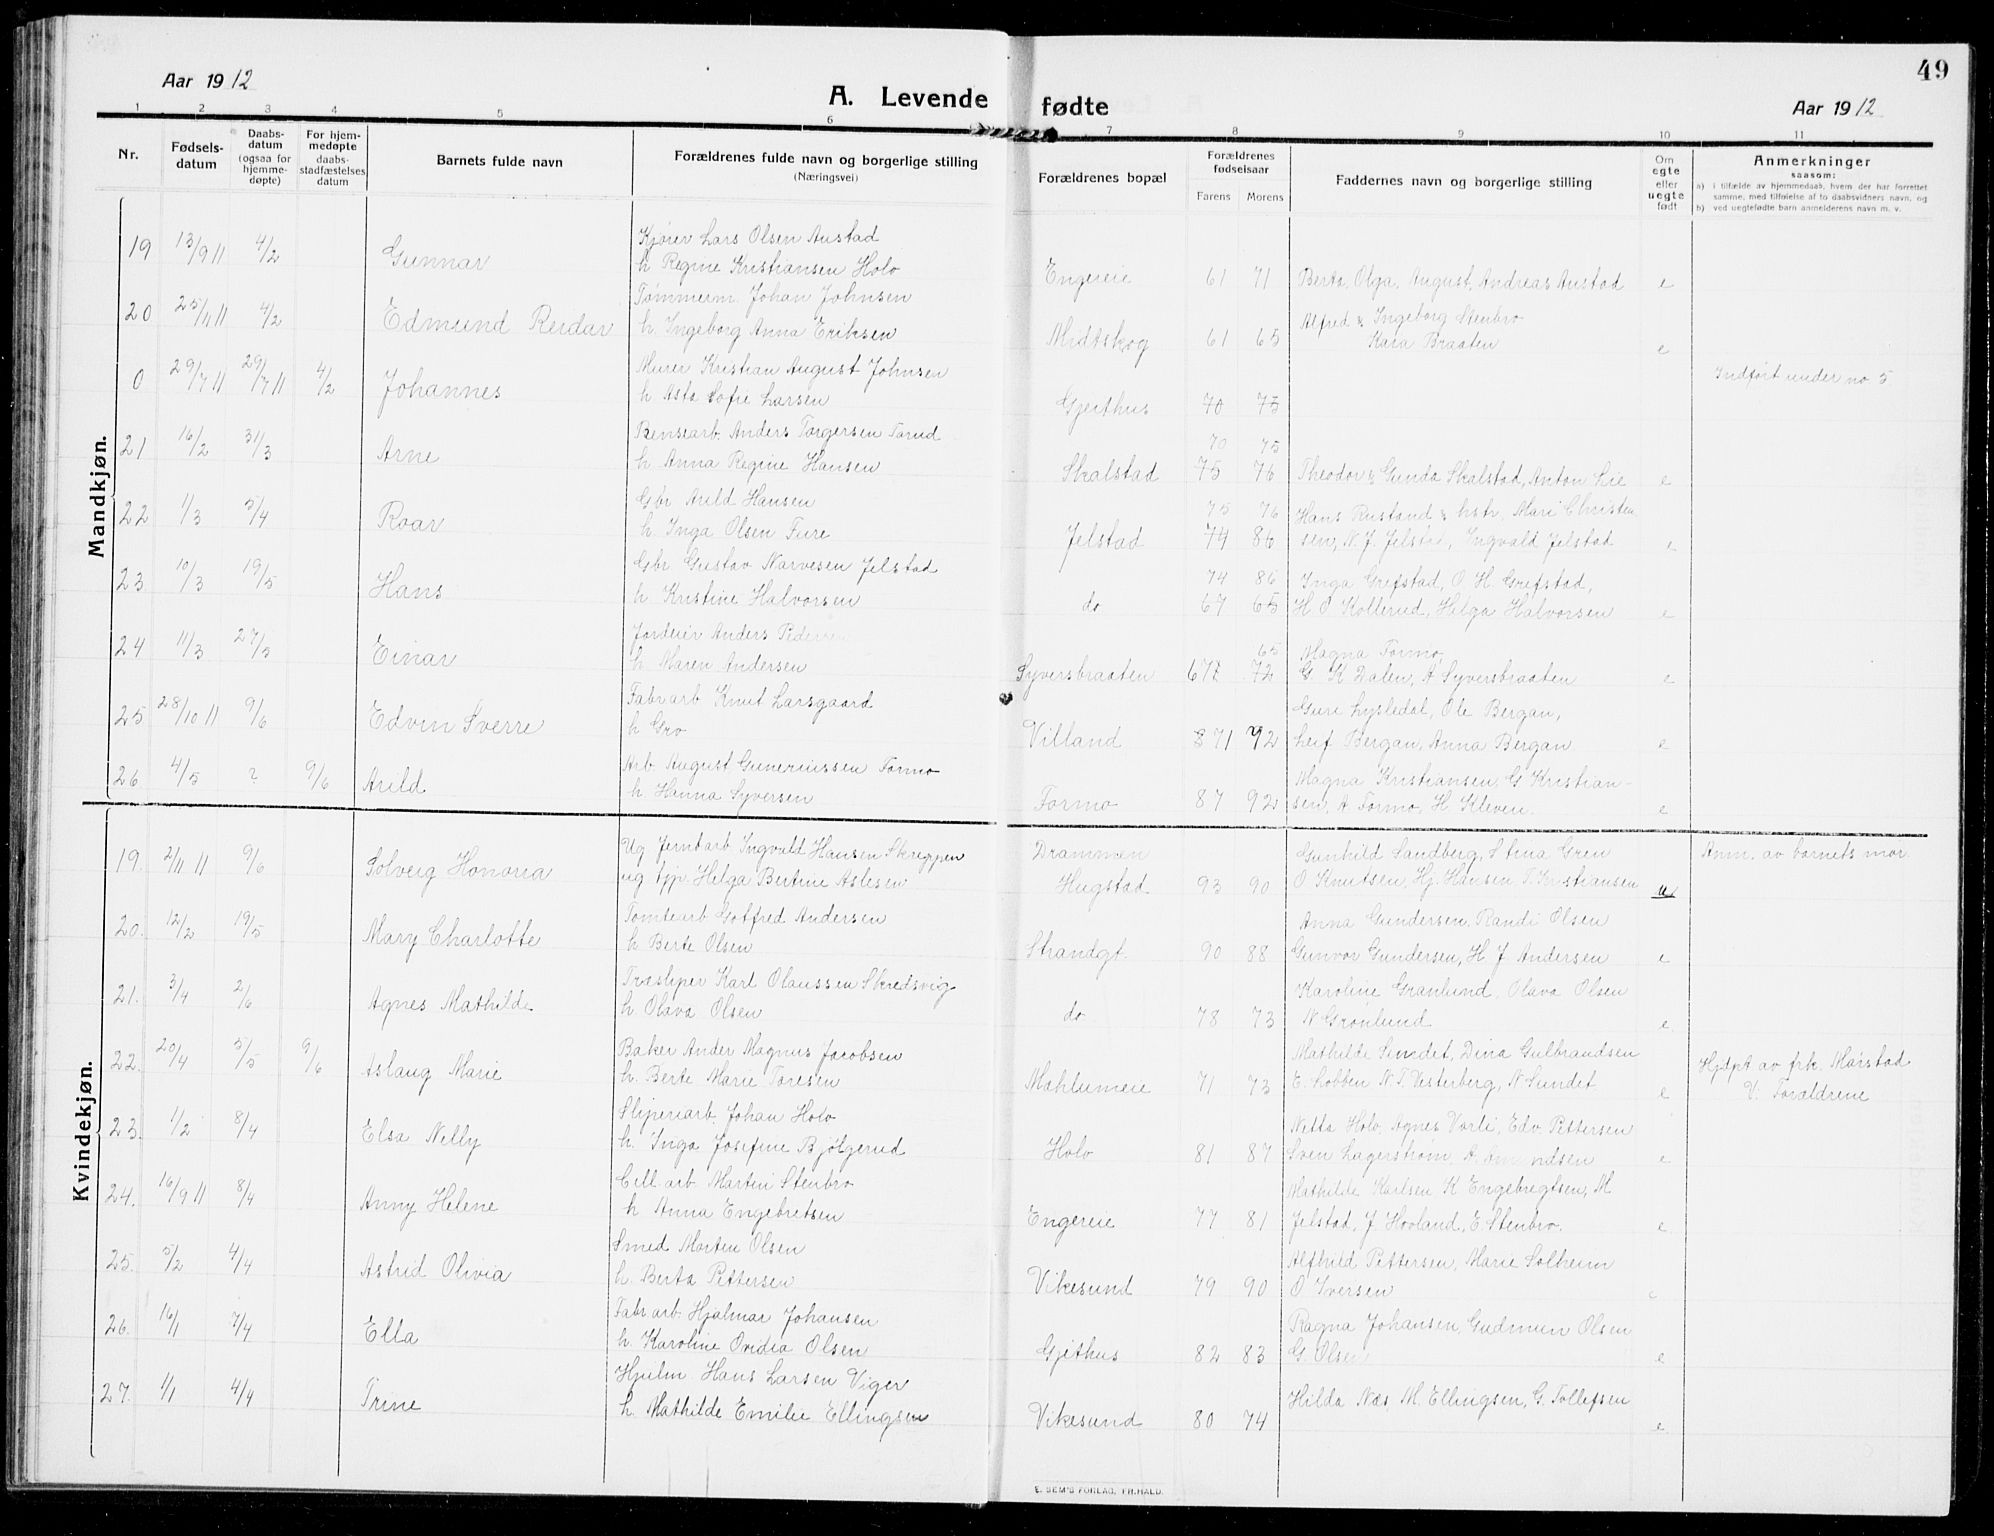 Aar 1912
A. Levende fødte
Aar 1912
49
1 2 3 4 5 6 7 8 9 10 11
Nr.
Fødsels-
datum
Daabs-
datum
(ogsaa for
hjemme-
døpte)
For hjem-
medøpte
daabs-
stadfæstelses
datum
Barnets fulde navn
Forældrenes fulde navn og borgerlige stilling
(Næringsvei)
Forældrenes bopæl
Forældrenes
fødselsaar
Farens Morens
Faddernes navn og borgerlige stilling
Om
egte
eller
uegte
født
Anmerkninger
saasom:
a) i tilfælde av hjemmedaab, hvem der har forrettet
samme, med tilføielse af to daabsvidners navn, og
b) ved uegtefødte barn anmelderens navn m. v.
Mandkjøn.
19 13/9 11 4/2 Gunnar
Kjører Lars Olsen Austad
h Regine Kristiansen Holo
Engereie 61 71 Berta, Olga, August, Andreas Austad e
20 25/11 11 4/2 Edmund Reidar
Tømmerm. Johan Johnsen
h. Ingeborg Anna Eriksen
Midtskog 61 65
Alfred & Ingeborg Stenbro
Kara Braaten e
0 29/7 11 29/7 11 4/2 Johannes
Murer Kristian August Johnsen
h Asta Sofie Larsen
Gjeithus 70 75
Indført under no 5.
21 16/2 31/3 Arne
Bensearb. Anders Torgersen Torud
h. Anna Regine Hansen
70 75
Skalstad 75 76 Theodor & Gunda Skalstad, Anton Lie e
22 1/3 5/4 Roar
Gbr Arild Hansen
h Inga Olsen Fure
75 76 Hans Rustand & hstr. Mari Christen
Jelstad 74 86 sen, N. J. Jelstad, Ingvald Jelstad e
23 10/3 19/5 Hans
Gbr Gustav Narvesen Jelstad
h. Kristine Halvorsen
74 86 Inga Grefstad, O H Grefstad,
do 67 65 H O Kollerud, Helga Halvorsen e
24 11/3 27/5 Einar
Jordeier Anders Pedersen
h. Maren Andersen
65 Magna Formo
Syversbraaten 677 72 G K Dalen, A Syversbraaten e
25 28/10 11 9/6 Edvin Sverre
Fabr arb Knut Larsgaard
h Gro
Guri Lysledal, Ole Bergan,
Villand 871 92 Leif Bergan, Anna Bergan e
26 4/5 ? 9/6 Arild
Arb. August Gunerinssen Formo
h. Hanna Syversen
Magna Kristiansen, G Kristian-
Formo 87 92 sen, A Formo, H Kleven. e
Kvindekjøn.
19. 2/11 11 9/6 Solveig Honoria
Ug Jerntarb Ingvald Hansen Skreppen
ug tjp. Helga Bertine Aslesen
Drammen
Gunhild Sandberg, Stina Gren
Hugstad 93 90 O Knutsen, Hj. Hansen T. Kristiansen u
Anm. av barnets mor.
20. 12/2 19/5 Mary Charlotte
Tomtearb Gotfred Andersen
h Berte Olsen
Anna Gundersen, Randi Olsen
Strandgt. 90 88 Gunvor Gundersen, H J Andersen e
21. 3/4 2/6 Agnes Mathilde
Træsliper Karl Olaussen Skredsvig
h Olava Olsen
Karoline Granlund, Olava Olsen
do 78 73 N Grønlund e
22. 20/4 5/5 9/6 Aslaug Marie
Baker Ander Magnus Jacobsen
h. Berte Marie Toresen
Mathilde Sundet, Dina Gulbrandsen
Mahlumeie 71 73 E. Lobben N. T. Vesterberg, N Sundet e
Hjdpt av frk. Maristad
V. Forældrene
23. 1/2 8/4 Elsa Nelly
Sliperiarb. Johan Holo
h. Inga Josefine Bjølgerud
Netta Holo, Agnes Varli, Edv. Pettersen
Holo 81 87 Sven Lagerstrøm, A. Amundsen e
24. 16/9 11 8/4 Anny Helene
Cell. arb. Martin Stenbro
h Anna Engebretsen
Mathilde Karlsen K Engebregtsen, M
Engereie 77 81 Jelstad, J. Hovland, E Stenbro. e
25. 5/2 4/4 Astrid Olivia
Smed Morten Olsen
h. Berta Pettersen
Alfhild Pettersen, Marie Solheim
Vikesund 79 90 O Iversen e
26. 16/1 7/4 Ella
Fabr arb. Hjalmar Johansen
h. Karoline Ovidia Olsen
Ragna Johansen, Gudmun Olsen
Gjethus 82 83 G. Olsen e
27. 1/1 4/4 Trine
Hjulm. Hans Larsen Viger
h. Mathilde Emilie Ellingsen
Hilda Næs, M. Ellingsen, G. Tollefsen
Vikesund 80 74 e
E. SEM'S FORLAG, FR.HALD.